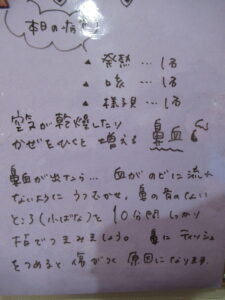 本日の病気
▲ 発熱 … 1名
▲ 咳 … 1名
▲ 様子見 … 1名
空気が乾燥したり
かぜをひくと 増える 鼻血
鼻血が出たら… 血がのどに流れ
ないように うつむかせ、鼻の骨のない
ところ(小ばな)を 10分間 しっかり
指でつまみましょう。鼻に ティッシュ
をつめると 傷がつく 原因になります。